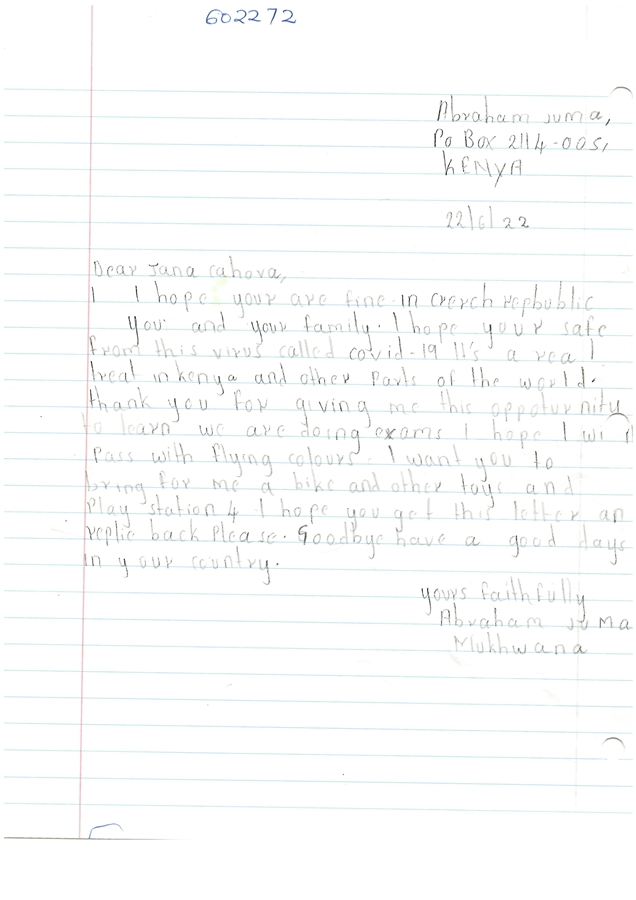 602272
Abraham Juma,
Po Box 2114-005,
KENYA
22/6/22
Dear Jana cahova,
I I hope your are fine in crerch repbublic
You and your family. I hope your safe
from this virus called covid-19 It's a real
treat in kenya and other Parts of the world.
thank you for giving me this oppoturnity
to learn we are doing exams I hope I will
Pass with flying colours. I want you to
bring for me a bike and other toys and
Play station 4 I hope you get this letter an
replie back Please. Goodbye have a good days
in your country.
yours faithfully
Abraham Juma
Mukhwana